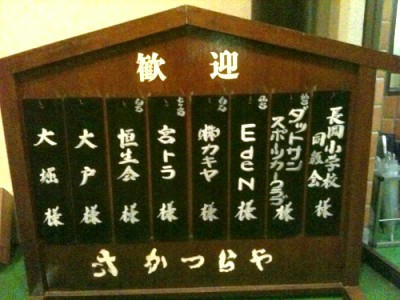 歓迎
長岡小学校同級会 様
ダットサンスポーツカークラブ 様
EdeN 様
㈱カキヤ 様
宮トラ 様
恒生会 様
大戸 様
大堀 様
さかつらや